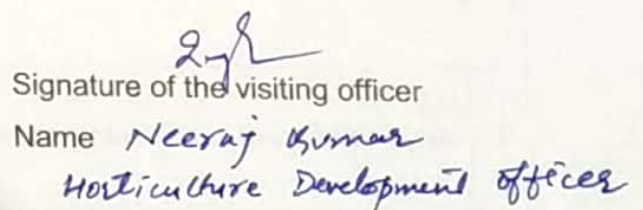 Signature of the visiting officer
Name Neeraj Kumar
Horticulture Development Officer